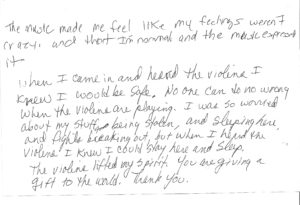 The music made me feel like my feelings weren't
crazy. and that I'm normal and the music expressed
it
When I came in and heard the violins I
knew I would be safe. No one can do no wrong
when the violins are playing. I was so worried
about my stuff being stolen, and sleeping here,
and fights breaking out, but when I heard the
violins I knew I could stay here and sleep.
The violins lifted my spirit. You are giving a
gift to the world. Thank you.